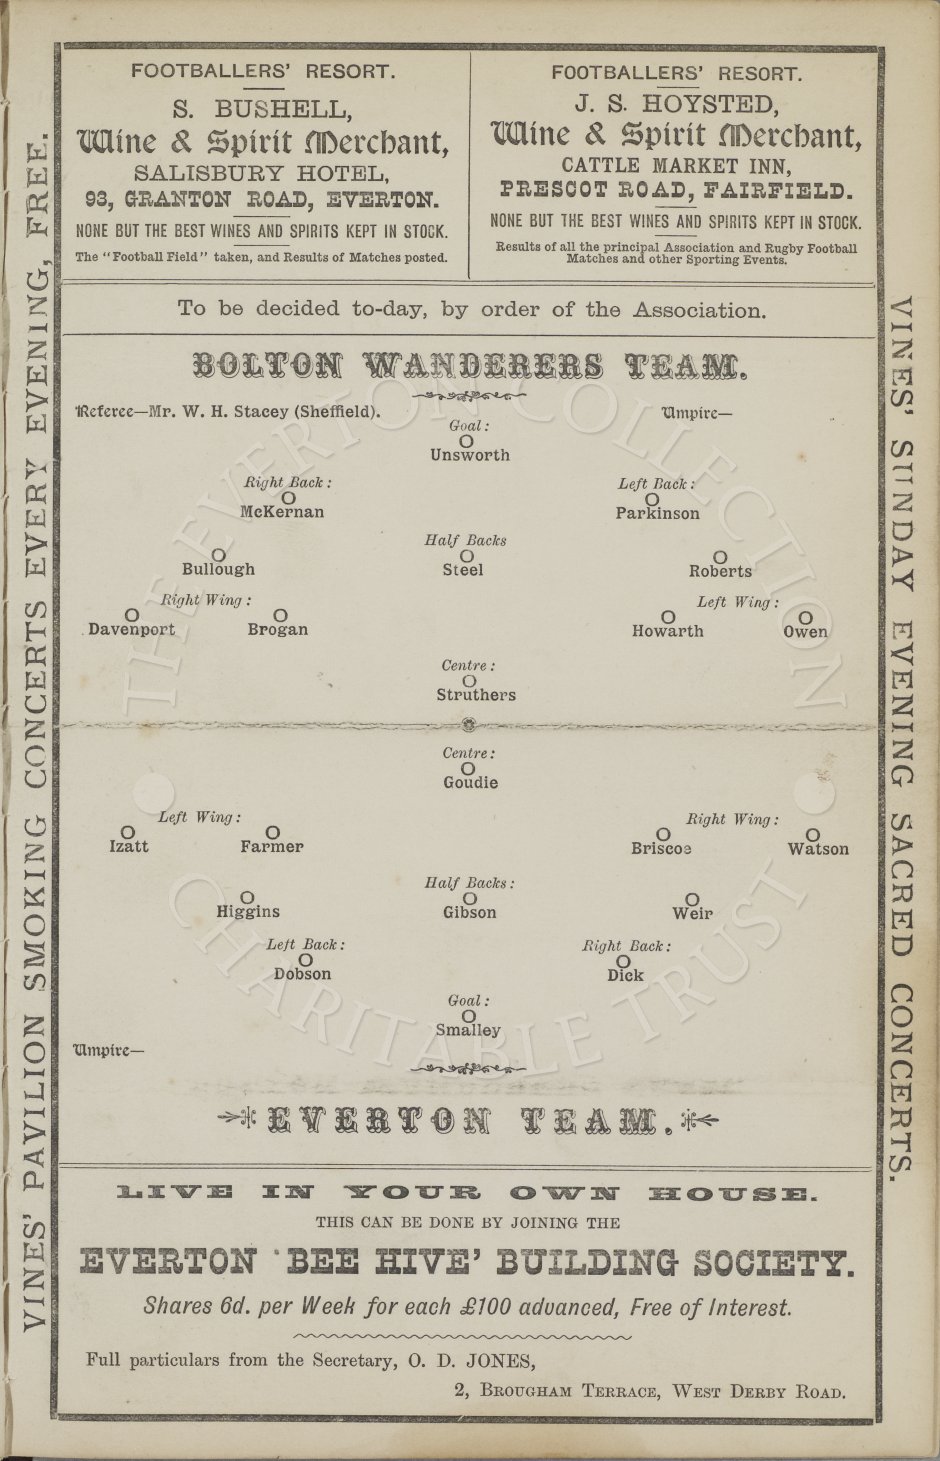 FOOTBALLERS' RESORT.
S. BUSHELL,
Wine & Spirit Merchant,
SALISBURY HOTEL,
93, GRANTON ROAD, EVERTON.
NONE BUT THE BEST WINES AND SPIRITS KEPT IN STOCK.
The "Football Field" taken, and Results of Matches posted.
FOOTBALLERS' RESORT.
J. S. HOYSTED,
Wine & Spirit Merchant,
CATTLE MARKET INN,
PRESCOT ROAD, FAIRFIELD.
NONE BUT THE BEST WINES AND SPIRITS KEPT IN STOCK.
Results of all the principal Association and Rugby Football
Matches and other Sporting Events.
VINES' PAVILION SMOKING CONCERTS EVERY EVENING, FREE.
VINES' SUNDAY EVENING SACRED CONCERTS.
To be decided to-day, by order of the Association.
BOLTON WANDERERS TEAM.
Referee—Mr. W. H. Stacey (Sheffield).
Umpire—
Goal:
O
Unsworth
Right Back: Left Back:
O O
McKernan Parkinson
Half Backs
O O O
Bullough Steel Roberts
Right Wing: Left Wing:
O O O O
Davenport Brogan Howarth Owen
Centre:
O
Struthers
Centre:
O
Goudie
Left Wing: Right Wing:
O O O O
Izatt Farmer Briscoe Watson
Half Backs:
O O O
Higgins Gibson Weir
Left Back: Right Back:
O O
Dobson Dick
Goal:
O
Smalley
Umpire—
EVERTON TEAM.
LIVE IN YOUR OWN HOUSE.
THIS CAN BE DONE BY JOINING THE
EVERTON 'BEE HIVE' BUILDING SOCIETY.
Shares 6d. per Week for each £100 advanced, Free of Interest.
Full particulars from the Secretary, O. D. JONES,
2, BROUGHAM TERRACE, WEST DERBY ROAD.
THE EVERTON COLLECTION
CHARITABLE TRUST